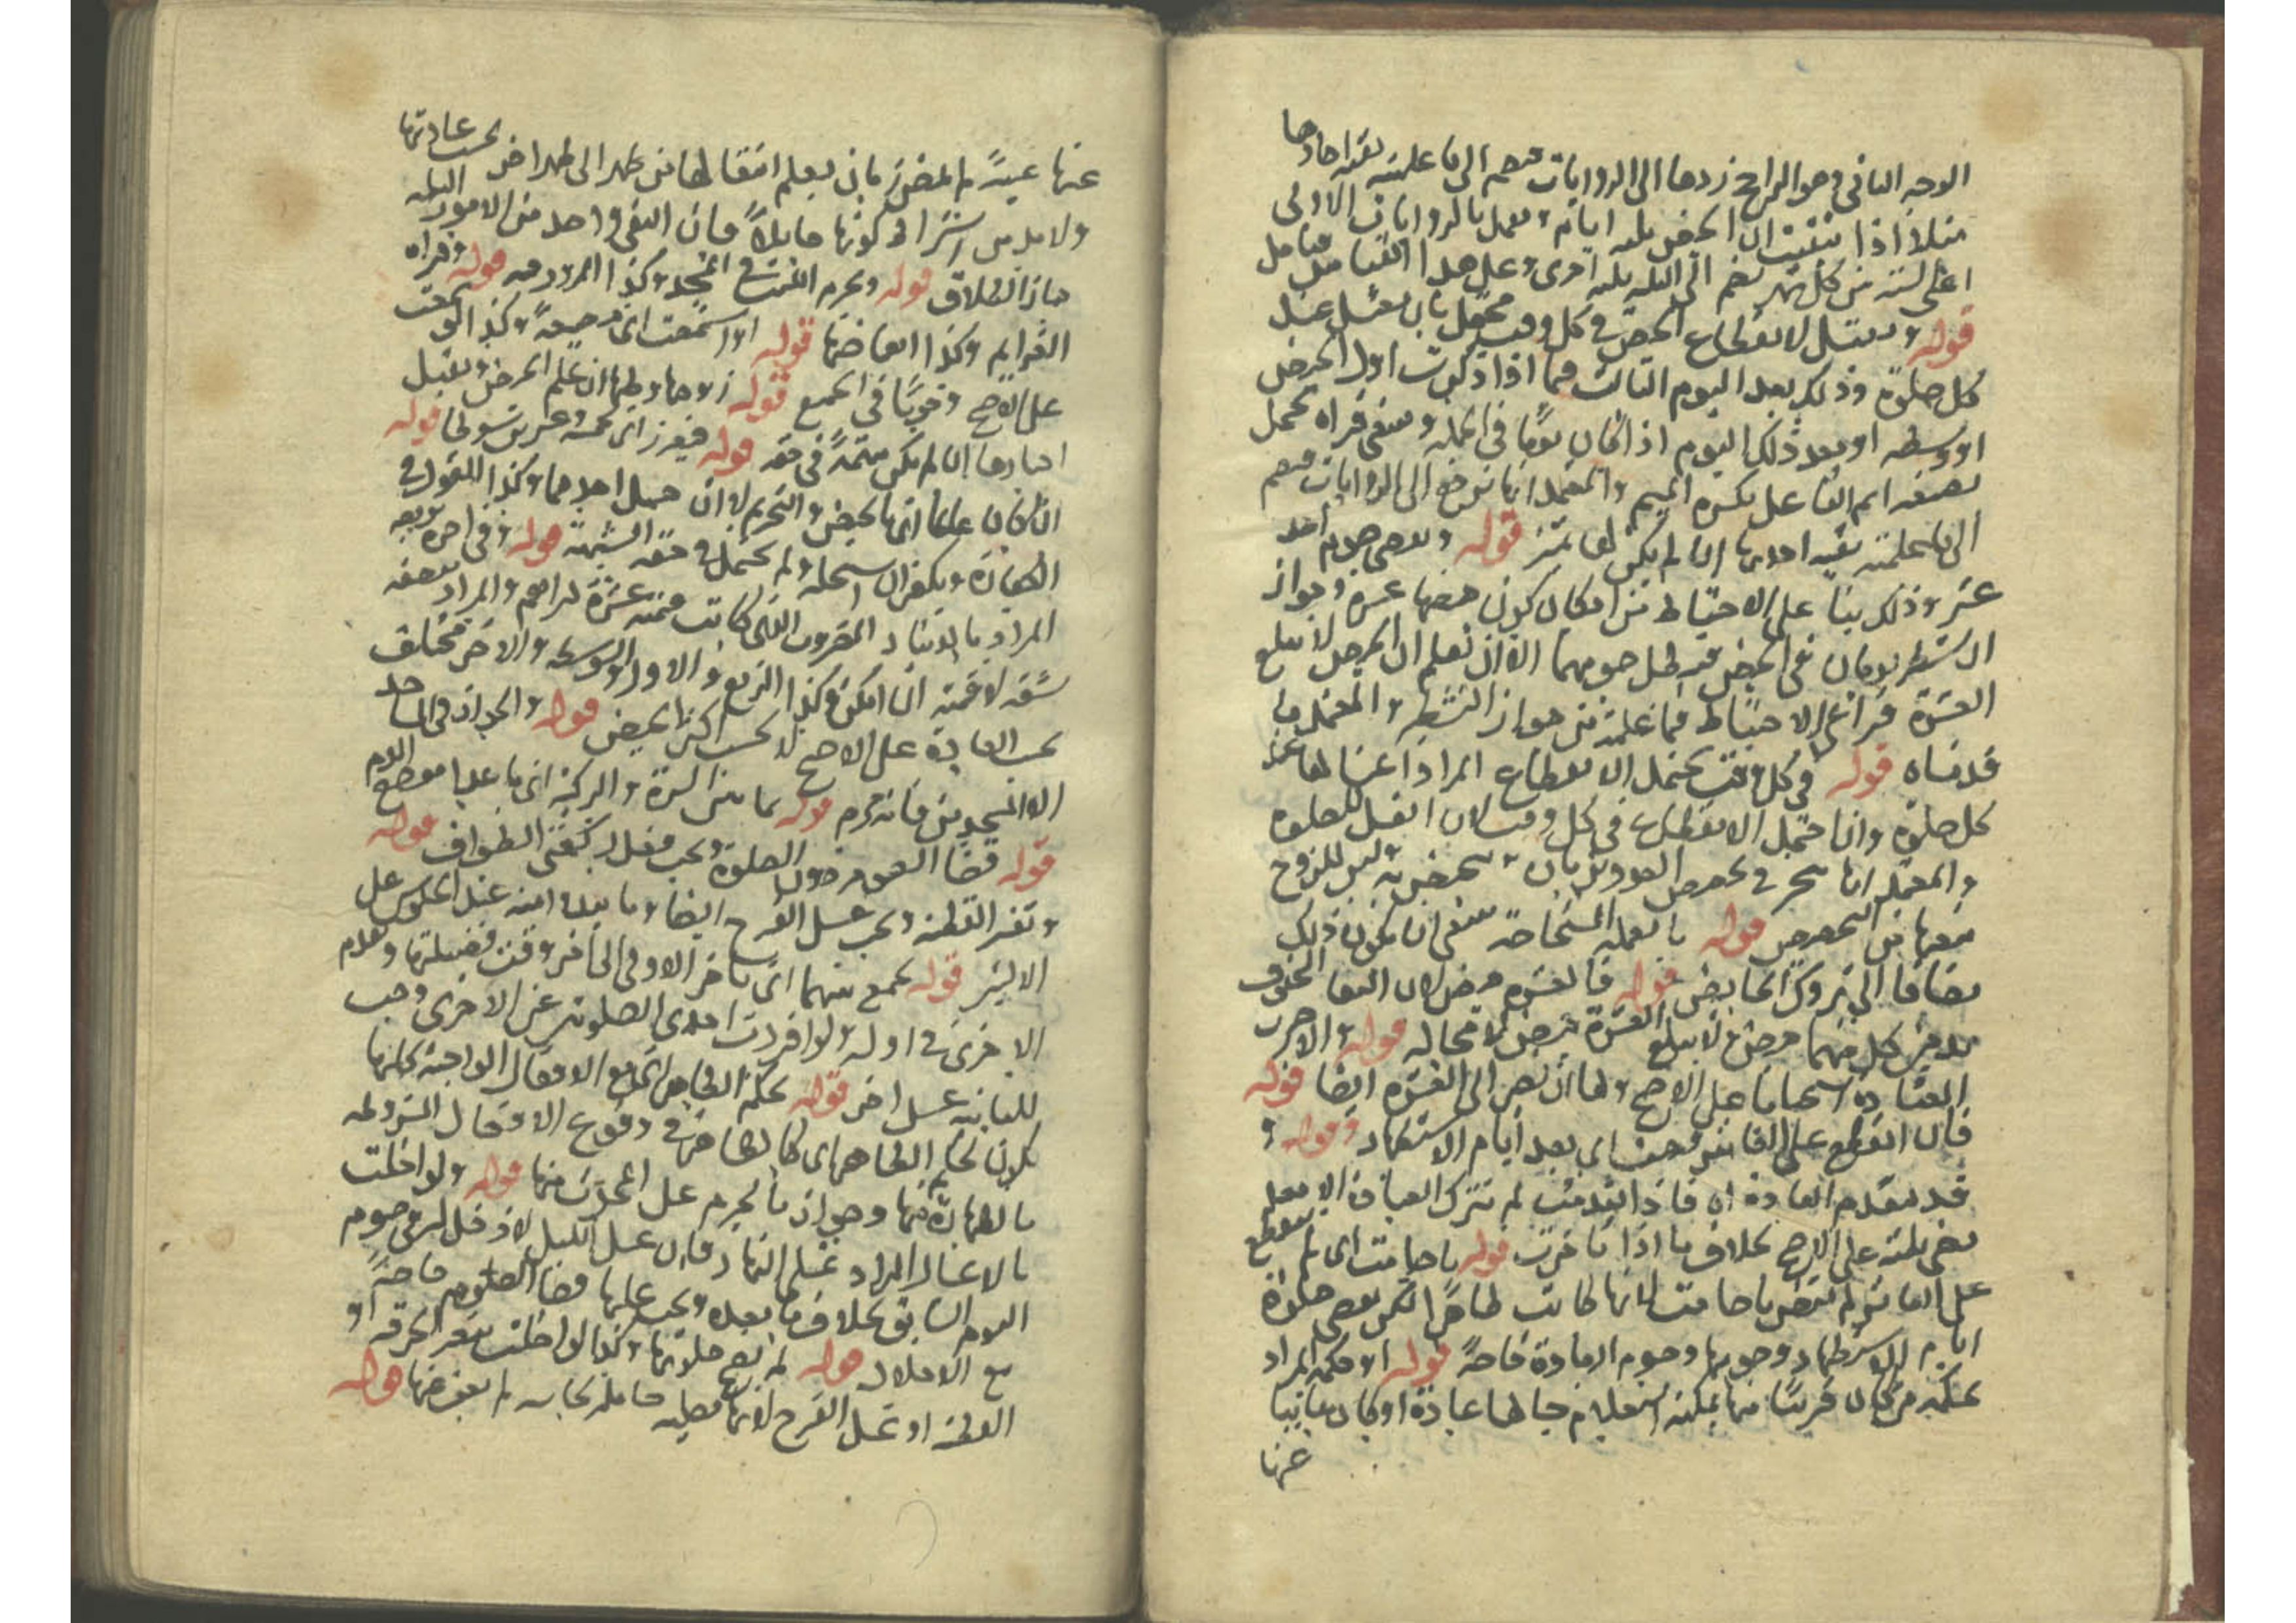 الوجه الثاني وهو الراجح زدها الى الروايات فيضم الى ما علمته بقية احادها
مثلا اذا تيقنت ان الحيض ثلثه ايام وتعمل بالروايات الاولى
اعنى الستة من كل شهر تضم الى الثلثه ثلثه اخرى وعلى هذا القياس
قوله وتغتسل لانقطاع الحيض في كل وقت محتمل بان تغتسل عند
كل صلوة وذلك بعد اليوم الثالث فيما اذا ذكرت اول الحيض
او وسطه او بعد ذلك اليوم اذا كان يوما في الجملة وينبغى قراه محتمل
بصيغه اسم الفاعل بكسر الميم والمعتمد انها ترجع الى الروايات فيضم
الى ما علمته بقية احديها ان لم يكن لها تميز قوله وتقضى صوم احد
عشر وذلك بنا على الاحتياط من امكان كون حيضها عشرة وجواز
التشطير يومان في الحيض فيبطل صومهما الا ان تعلم ان الحيض لا يبلغ
العشرة فراعى الاحتياط فيما علمته من جواز التشطير والمعتمد ما
قدمناه قوله في كل وقت يحتمل الانقطاع المراد اغتسالها عند
كل صلوة وانما احتمل الانقطاع في كل وقت لان الغسل للصلوة
والمعتمد انها تتخير في تخصيص العدد بزمان تتحيض به ليس للزوج
منعها من التخصيص قوله ما تعمله المستحاضة ينبغى ان يكون ذلك
مضافا الى تروك الحايض قوله فالعشرة حيض لان النقا المحفوف
بدمين كل منهما حيض لا يبلغ العشرة حيض لا محاله قوله والاخرى
المعتادة استحبابا على الاصح ولها ان تصبر الى العشرة ايضا قوله
فان انقطع على العاشر قضت اى بعد ايام الاستظهار قوله و
قد يتقدم العادة اه فاذا تقدمت لم تترك العبادة الا بعد
مضى ثلثه على الاصح بخلاف ما اذا تاخرت قوله ما صامت اى لم ينقطع
على العاشر لم تقض ما صامت لانها كانت طاهرا لكن تقضى صلوة
ايام الاستظهار وجوبها وصوم العادة خاصة قوله الا مكنه المراد
بمكنه من كان قريبا منها يمكنه استعلام حالها عادة او كان غايبا
عنها
عنها غيبة لم يحضر بان يعلم انتقالها من طهر الى طهر اخر بحسب عادتها
ولا بد من اشتراط كونها حايلا فان انتفى واحد من الامور الثلثه
جاز الطلاق قوله ويحرم اللبث في المسجد وكذا المرور فيه قوله وقراه
العزايم وكذا ابعاضها قوله او استمعت اى وجوبا وكذا لو سمعت
على الاصح وجوبا في الجميع قوله زوجها وطيها ان علم الحيض ويقبل
اخبارها ان لم يكن متهمة في حقه قوله فيعزر اى بخمسة وعشرين سوطا قوله
ان كان عالما انها بالحيض والتحريم لا ان جهل احدهما وكذا القول في
الكفارة ويكفر ان استحله ولم يحتمل في حقه الشبهة قوله وفى اخره بربعه
المراد بالدينار المضروب الذى كانت قيمته عشرة دراهم والمراد نصفه
ستة لا قيمته ان امكن وكذا الربع والاول والوسط والاخر مختلف
بحسب العادة على الاصح لا بحسب اكثر الحيض قوله والجواز في المساجد
الا المسجدين فانه يحرم قوله بما بين السرة والركبة اى ما عدا موضع الدم
قوله قضا الصوم دون الصلوة ويجب فعل ركعتى الطواف قوله
وتغير القطنه ويجب غسل الفرج ايضا وما يبدو منه عند الجلوس على
الاليتين قوله تجمع بينهما اى تاخر الاولى الى اخر وقت فضيلتها وتقدم
الاخرى في اوله ولو افردت احدى الصلوتين عن الاخرى وجب
للثانية غسل اخر قوله بحكم الطاهر اى مع الافعال الواجبة كلها
تكون بحكم الطاهر اى كالطاهر في وقوع الافعال المشروطه
بالطهارة منها وجواز ما يحرم على المحدث منها قوله ولو اخلت
بالاغسال المراد غسل النهار فان غسل الليل لا دخل له في صوم
اليوم السابق بخلاف ما بعده ويجب عليها قضا الصوم خاصة
مع الاخلال قوله لم تصح صلاتها وكذا لو اخلت بتغير الخرقه او
القطنه او غسل الفرج لانها مصليه حاملة نجاسه لم يعف عنها قوله